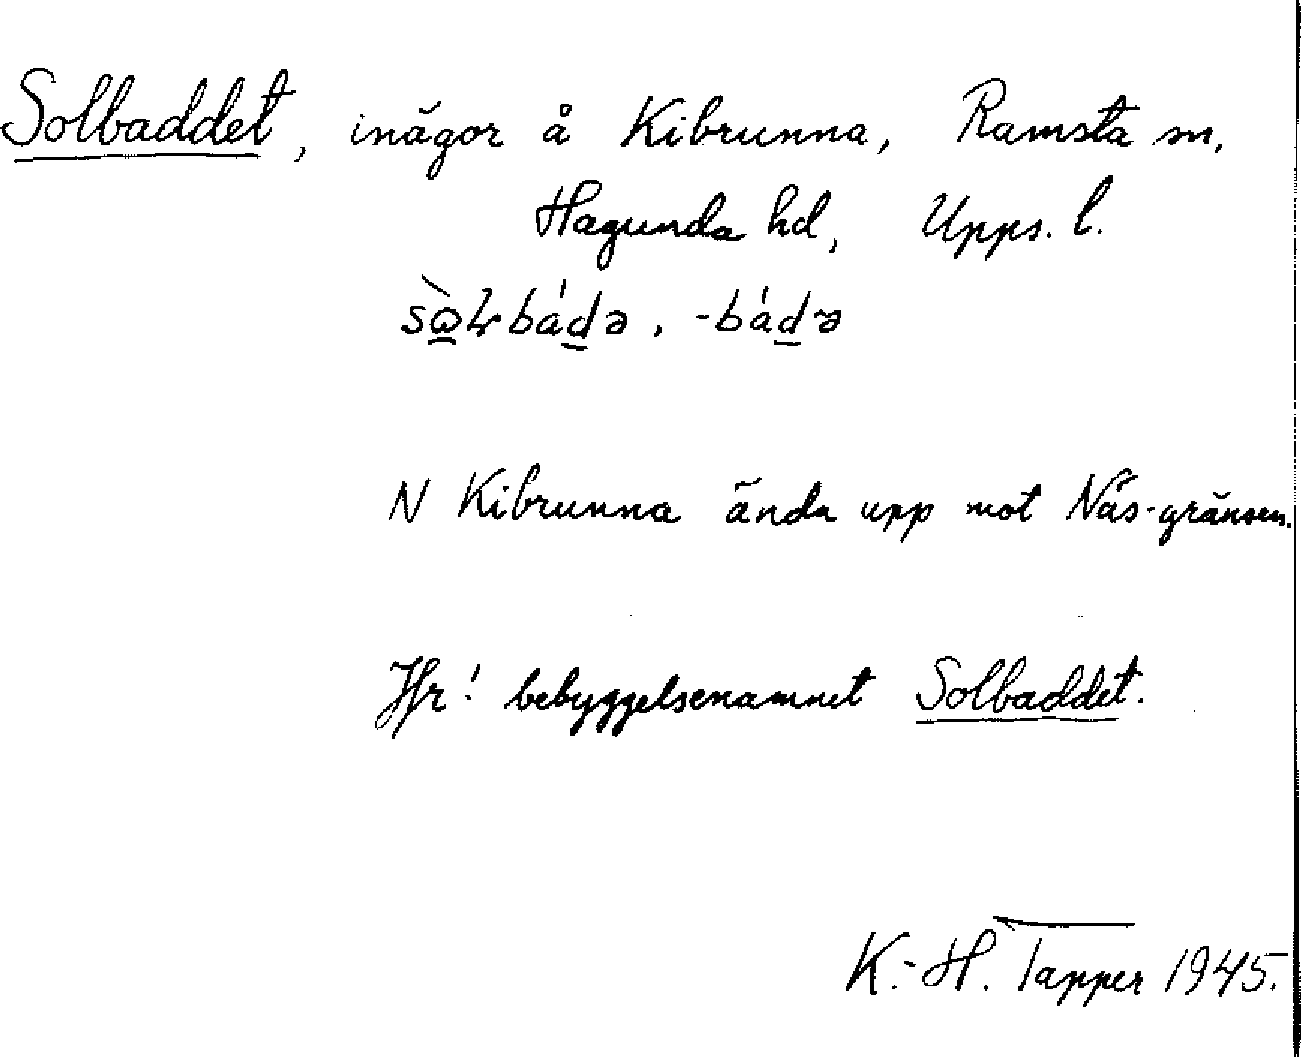 Solbaddet, inägor å Kibrunna, Ramsta sn,
Hagunda hd, Upps. l.
N Kibrunna ända upp mot Näs-gränsen.
Jfr! bebyggelsenamnet Solbaddet.
K.-H. Tapper 1945.